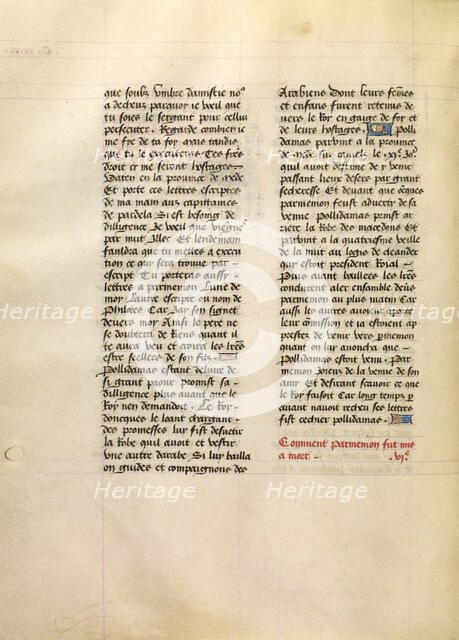 que soubz umbre damistie no9
a deceuz parquoy ie vueil que
tu soies le sergant pour cellui
persecuter. Regarde combien ie
me fie de ta foy mais tandis
que tu le executeras Tes freres
droit cy me seront hostages
Va ten en la province de mede
Et porte ces lettres escriptes
de ma main aux capittaines
de pardela Si est besoing de
dilligence Je vueil que
par nuit Illec Et lendemain
fauldra que tu metes a execu
tion ce qui sera trouve par
escript Tu porteras aussy
lettres a parmenyon Lune de
moy Lautre escripte ou nom de
philotes Car Jay son signet
devers moy Ainsi le pere ne
se doubtera de Riens quant il
te aura veu et avoir les lettres
estre seellees de son filz.
Pollidamas estant delivre de
si grant paour promist sa
dilligence plus avant que le
Roy nen demandoit. Le Roy
doncques le loant chargant
des promesses luy fist desvestir
la Robe quil avoit et vestir
une autre darabe Si luy bailla
en guides et compaignons des
Arabiens Dont leurs femmes
et enfans furent retenus de
vers le Roy en gaige de foy et
de leurs hostages. Polli
damas parvint a la province
de mede sur camelz le xje Jo9
quil avoit destine de y venir
passant lieux desers par grant
secheresse Et devant que
parmenion feust advertu de sa
venue Pollidamas prinst ar
riere la Robe des macedons Et
parvint a la quatriesme veille
de la nuit au logis de cleander
qui estoit president Roial
Plus avant baillees les lres
conclurent aler ensemble devers
parmenion au plus matin Car
aussi les autres avoient aporte
leur commission et ia estoient ap
prestez de venir vers parmenion
quant on luy anoncha que
Pollidamas estoit venu. Par
menion Joieux de la venue de son
amy Et desirant scavoir ce que
le Roy faisoit Car long temps y
avoit navoit receu ses lettres
fist cerchier pollidamas.
Comment parmenion fut mis
a mort. .vje.
Heritage
Heritage
Heritage
Heritage
Heritage
Heritage